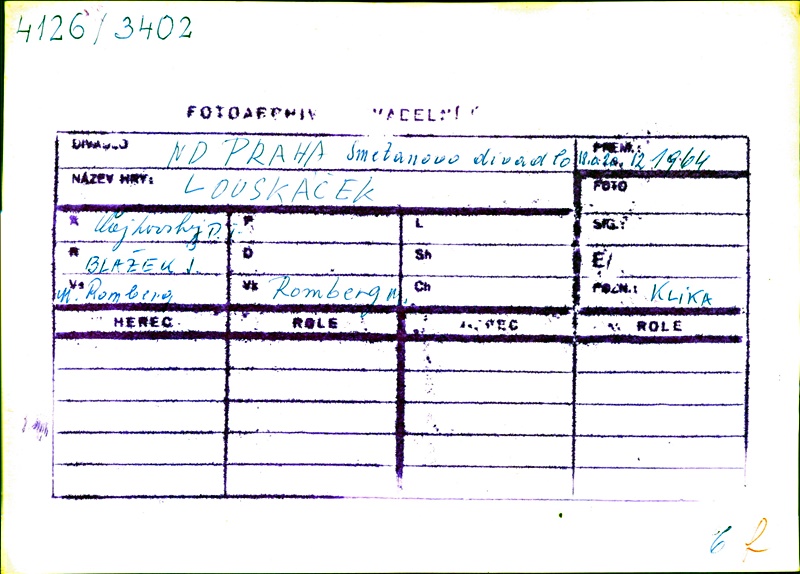 4126/3402
FOTOARCHIV
DIVADLO ND PRAHA Smetanovo divadlo PREM.: 12. 1964
NÁZEV HRY: LOUSKÁČEK FOTO
A Čajkovskij P. I. P L SIG.:
R BLAŽEK J. D Sh E/
Vs M. Romberg Vk Romberg M. Ch POZN.: KLIKA
HEREC ROLE HEREC ROLE
6